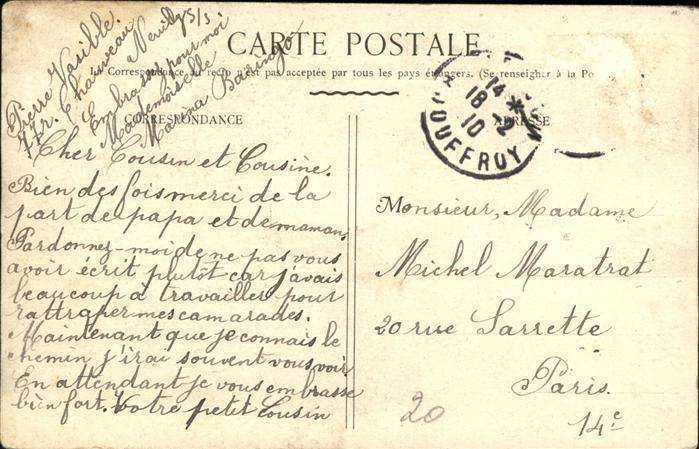 CARTE POSTALE
La Correspondance au recto n'est pas acceptée par tous les pays étrangers. (Se renseigner à la Po
CORRESPONDANCE
ADRESSE
Cher Cousin et Cousine.
Bien des fois merci de la
part de papa et de maman.
Pardonnez-moi de ne pas vous
avoir écrit plutôt car j'avais
beaucoup à travailler pour
rattraper mes camarades.
Maintenant que je connais le
chemin j'irai souvent vous voir
En attendant je vous embrasse
bien fort. Votre petit Cousin
Pierre
r. Chauveau
Neuilly s/s
Embrassez pour moi
Mademoiselle
Marina
14 *
18 - 2
10
OUFFROY
Monsieur, Madame
Michel Maratrat
20 rue Sarrette
Paris.
14e
20